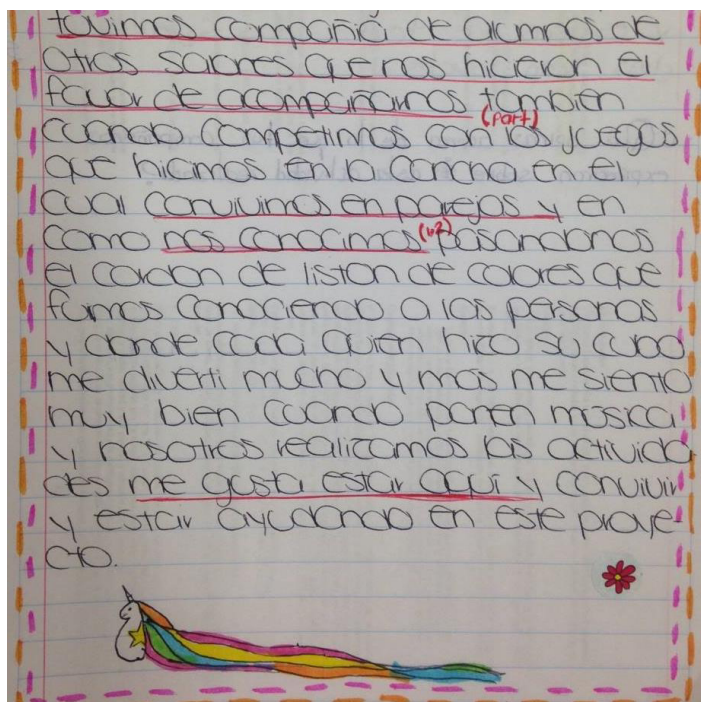 tuvimos compañia de alumnos de
otros salones que nos hicieron el
favor de acompañarnos también
(part)
cuando competimos con los juegos
que hicimos en la cancha en el
cual convivimos en parejas y en
como nos conocimos (v2) pasandonos
el cordon de liston de colores que
fuimos conociendo a las personas
y donde cada quien hizo su cubo
me diverti mucho y mas me siento
muy bien cuando ponen música
y nosotros realizamos las activida
des me gusta estar aquí y convivir
y estar ayudando en este proye-
cto.